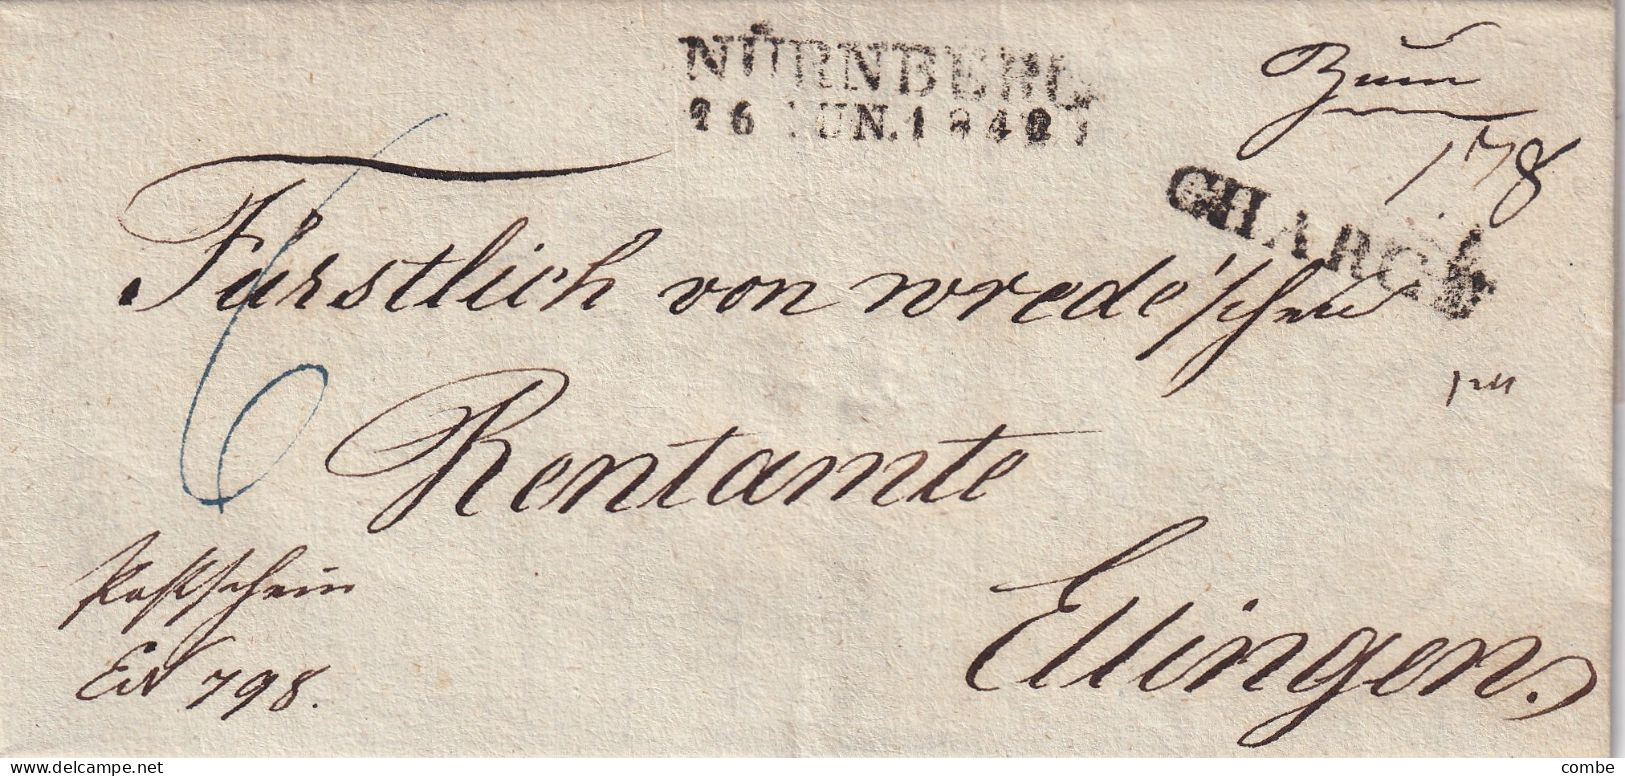 NÜRNBERG
26 JUN. 184
178
CHARGÉ
Fürstlich von wrede'schen
Rentamte
Ellingen.
Postschein
798.
6
delcampe.net
combe